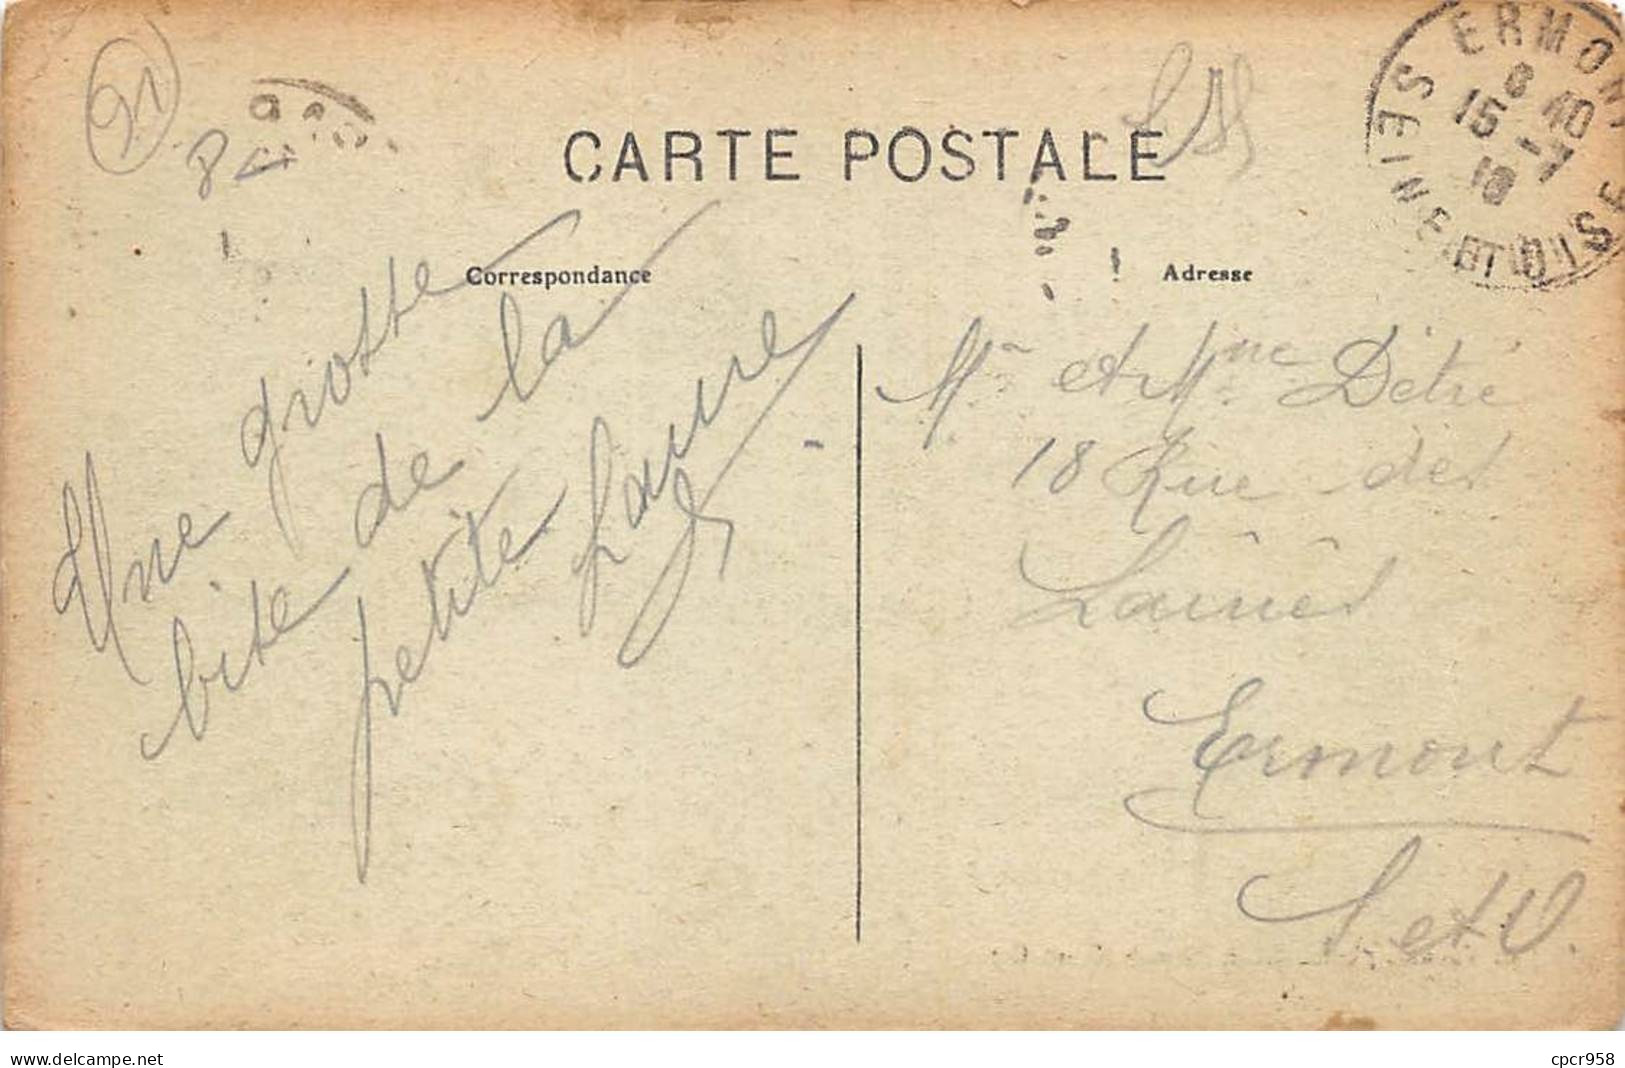 91
CARTE POSTALE
ERMONT
8 40
15 - 7
18
SEINE ET OISE
Correspondance
Adresse
Une grosse
bise de la
petite Laure
Mr et Mme Détré
18 Rue des
Ermont
S et O.
delcampe.net
cpcr958